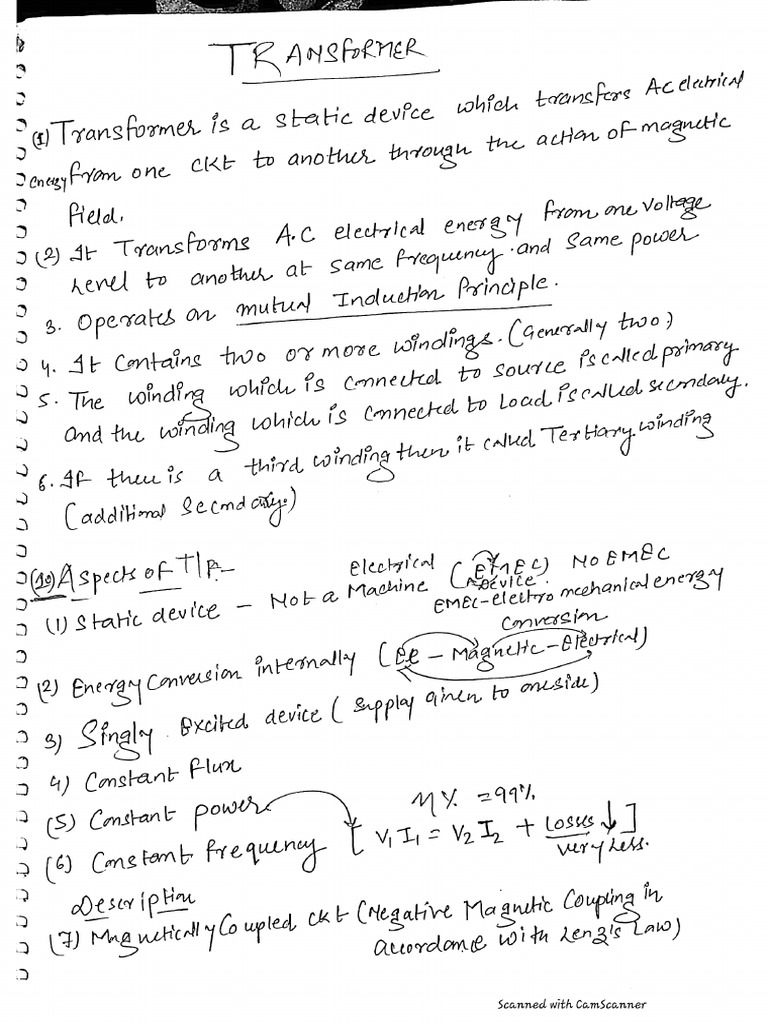 TRANSFORMER
(1) Transformer is a static device which transfers AC electrical
energy from one ckt to another through the action of magnetic
field.
(2) It Transforms A.C electrical energy from one voltage
Level to another at same frequency and same power
3. Operates on mutual Induction Principle.
4. It contains two or more windings. (Generally two)
5. The winding which is connected to source is called primary
and the winding which is connected to Load is called secondary.
6. If there is a third winding then it called Tertiary winding
(additional secondary.)
(10) Aspects of T/F
(1) Static device - Not a Electrical Machine (EMEC) Device. NO EMEC
EMEC-electro mechanical energy
conversion
(2) Energy Conversion internally (EE - Magnetic - Electrical)
3) Singly Excited device (supply given to one side)
4) Constant flux
(5) Constant power η% = 99%
(6) Constant frequency [V1I1 = V2I2 + Losses ↓]
very Less.
Description
(7) Magnetically Coupled ckt (Negative Magnetic Coupling in
accordance with Lenz's Law)
Scanned with CamScanner